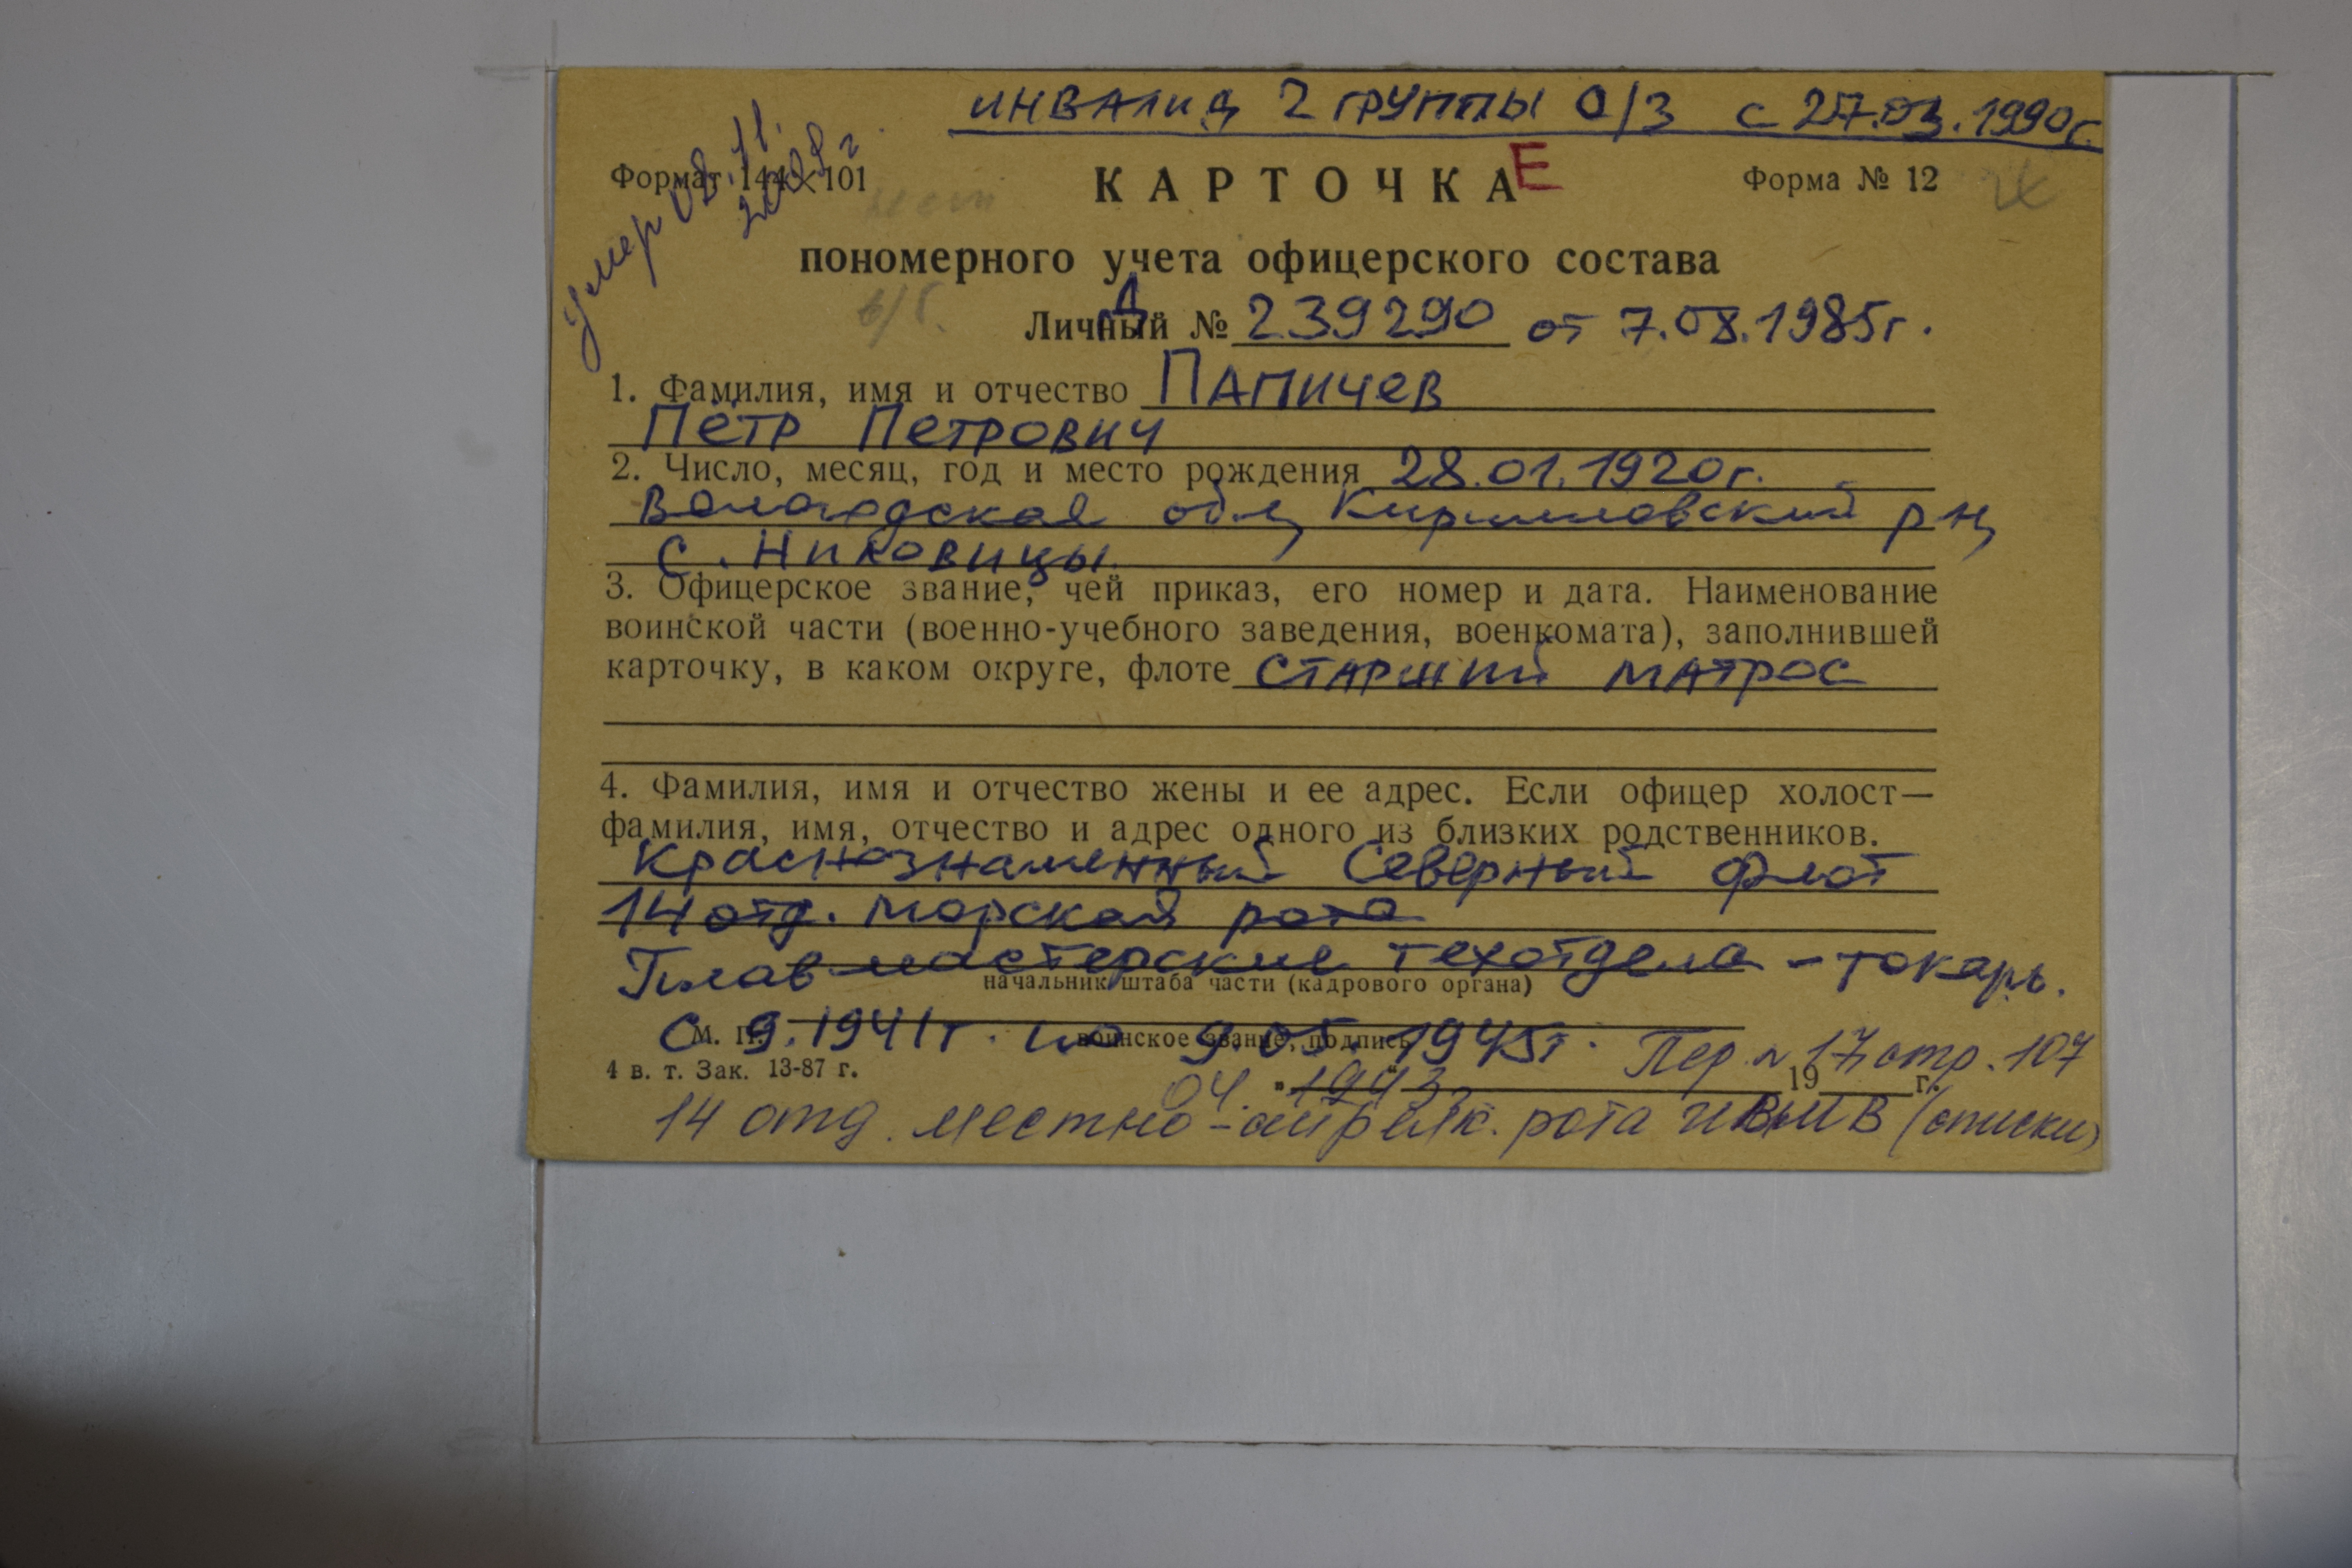 инвалид 2 группы О/З с 27.03.1990г.
умер 08.11.
Формат 144×101
КАРТОЧКА Е
Форма № 12
пономерного учета офицерского состава
б/б.
Д
Личный № 239290 от 7.08.1985г.
1. Фамилия, имя и отчество Папичев
Пётр Петрович
2. Число, месяц, год и место рождения 28.01.1920г.
Вологодская обл, Кирилловский р-н,
с. Никовицы.
3. Офицерское звание, чей приказ, его номер и дата. Наименование
воинской части (военно-учебного заведения, военкомата), заполнившей
карточку, в каком округе, флоте старший матрос
4. Фамилия, имя и отчество жены и ее адрес. Если офицер холост—
фамилия, имя, отчество и адрес одного из близких родственников.
Краснознаменный Северный флот
14 отд. морская рота
Плав мастерские техотдела - токарь.
начальник штаба части (кадрового органа)
с 9.1941г. по 9.05.1945г.
М. П.
воинское звание, подпись
Пер. № 17 стр. 107
4 в. т. Зак. 13-87 г.
04. 1943 19 г.
14 отд. местно-стрелк. рота (списки)